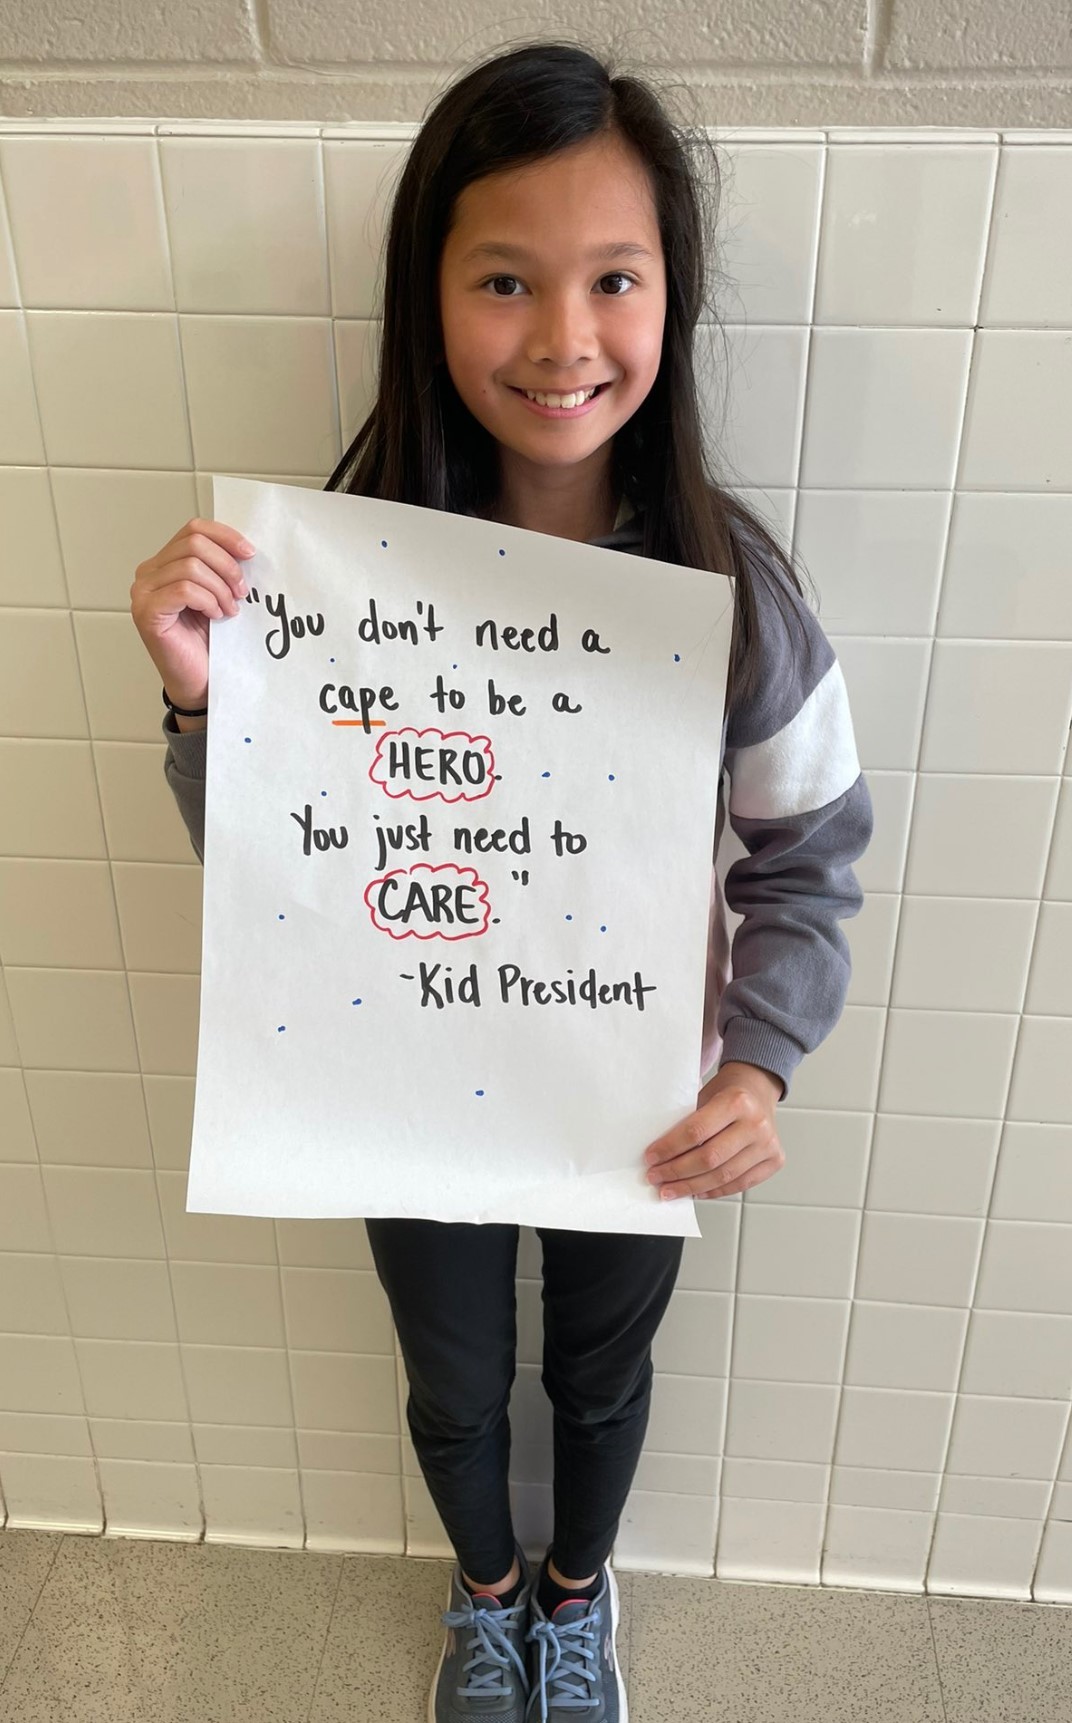 "You don't need a
cape to be a
HERO.
You just need to
CARE."
-Kid President